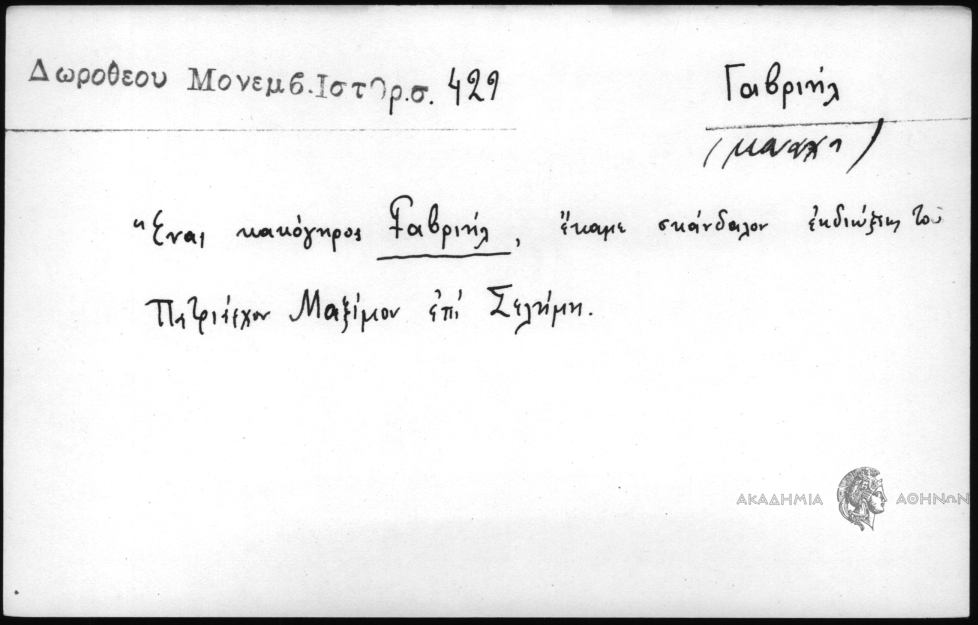 Δωροθεου Μονεμβ.Ιστορ.σ. 429
Γαβριήλ
(μοναχο)
"Ενας κακόγηρος Γαβριήλ, ἔκαμε σκάνδαλον ἐκδιώξεως τοῦ
Πατριάρχου Μαξίμου ἐπί Σελήμη.
ΑΚΑΔΗΜΙΑ ΑΘΗΝΩΝ